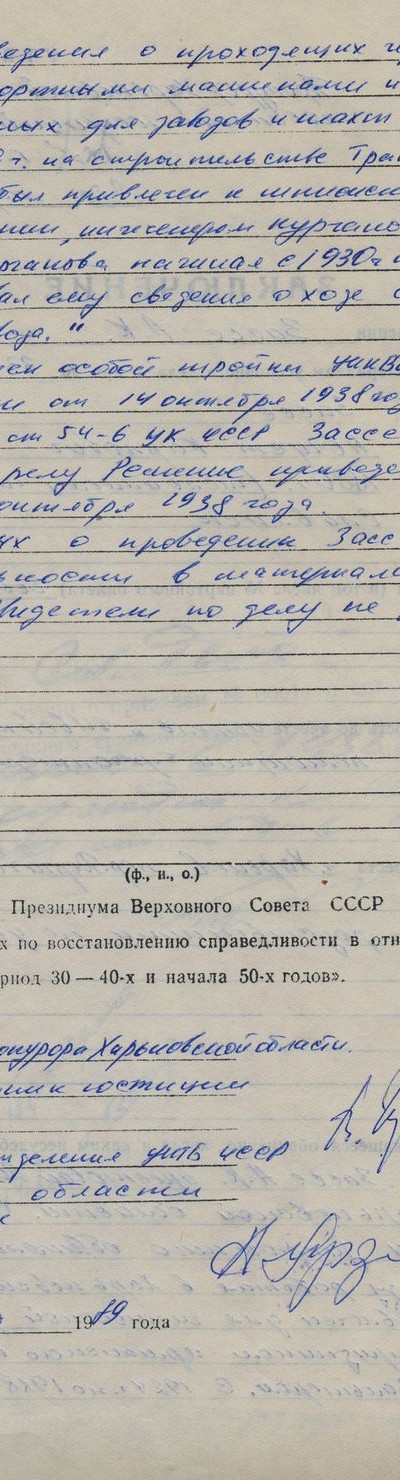 ведения о проходящих
ортными машинами и
ных для заводов и шахт
г. на строительстве Тра
был привлечен к шпионск
нии, инженером Кургано
рганова начиная с 1930г
вал ему сведения о ходе
воза."
ем особой тройки УНКВ
и от 14 октября 1938 го
ст 54-6 УК УССР Зассе
релу Решение приведе
октября 1938 года.
ых о проведении Засс
ьности в материала
видетели по делу не
(ф., и., о.)
Президиума Верховного Совета СССР
х по восстановлению справедливости в отн
риод 30 — 40-х и начала 50-х годов».
рокурора Харьковской области.
ник юстиции
тделения УКГБ УССР
области
1989 года